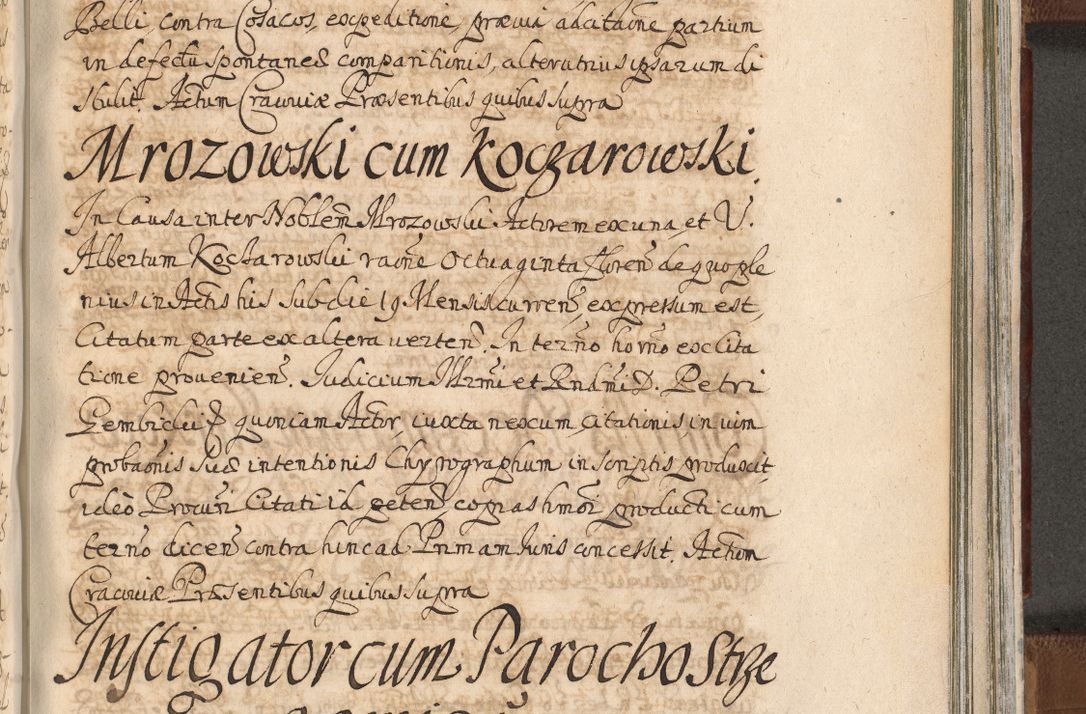 Belli, contra Cosacos, expeditione, prævia adcitaõne partium
in defectu spontaneæ comparitionis, alterutrius ipsarum di
stulit. Actum Cracoviæ Præsentibus quibus supra
Mrozowski cum Koczarowski.
In Causa inter Noblem̃ Mrozowski Actorem ex una, et V.
Albertum Koczarowski raõne Octuaginta floreñ de quo ple
nius in Actis his sub die 19 Mensis curreñ, expressum est,
Citatum parte ex altera verteñ. In termño horño ex Cita
tione provenieñ. Judicium Illrmi et Rndmi D. Petri
Gembicki E quoniam Actor, iuxta nexum, Citationis, in vim
probaõnis suæ intentionis Chyrographum in scriptis produxit,
ideo Procuri Citati id peteñ copias hmõi producti cum
termño diceñ contra hinc ad Pnmam Juris concessit. Actum
Cracoviæ Præsentibus quibus supra
Instigator cum Parocho Strze